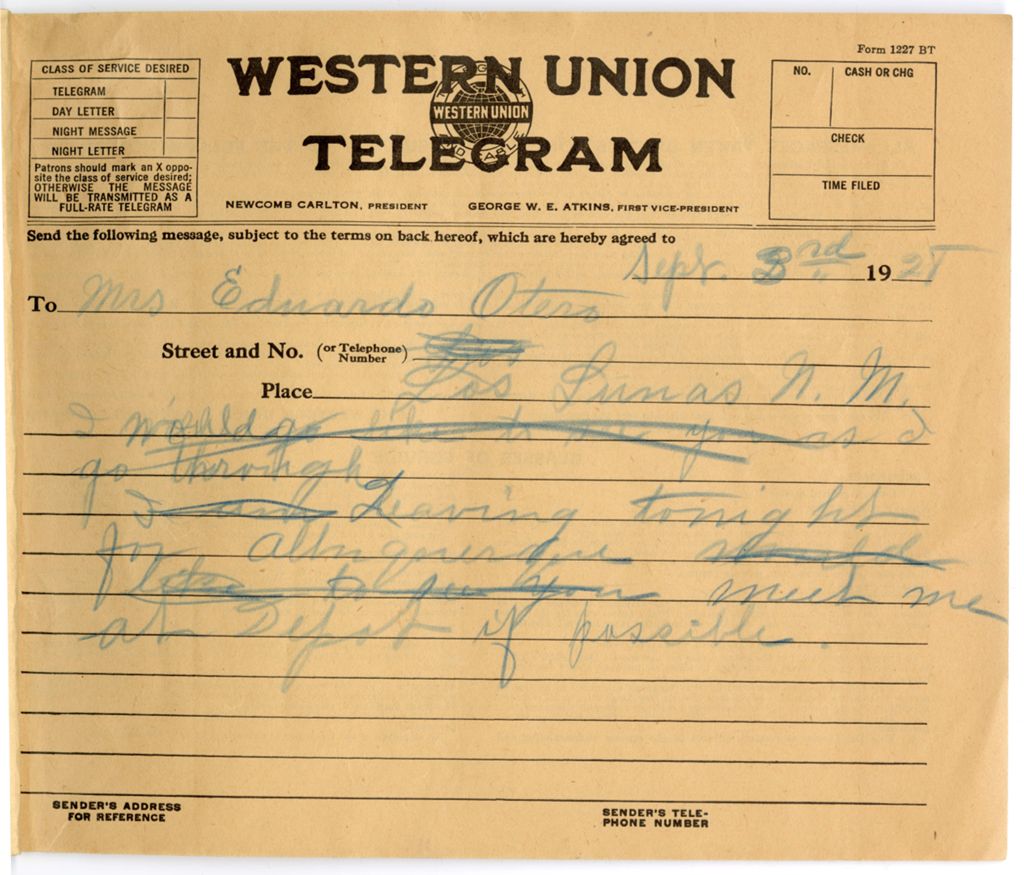 Form 1227 BT
CLASS OF SERVICE DESIRED
TELEGRAM
DAY LETTER
NIGHT MESSAGE
NIGHT LETTER
Patrons should mark an X oppo-
site the class of service desired;
OTHERWISE THE MESSAGE
WILL BE TRANSMITTED AS A
FULL-RATE TELEGRAM
WESTERN UNION
WESTERN UNION
TELEGRAM
NEWCOMB CARLTON, PRESIDENT
GEORGE W. E. ATKINS, FIRST VICE-PRESIDENT
NO.
CASH OR CHG
CHECK
TIME FILED
Send the following message, subject to the terms on back hereof, which are hereby agreed to
Sept. 3rd 1921
To Mrs Eduardo Otero
Street and No. (or Telephone Number) Los
Place Los Lunas N. M.
I would like to see you as I
go through
I am Leaving tonight
for Albuquerque would
like to see you meet me
at Depot if possible.
SENDER'S ADDRESS
FOR REFERENCE
SENDER'S TELE-
PHONE NUMBER